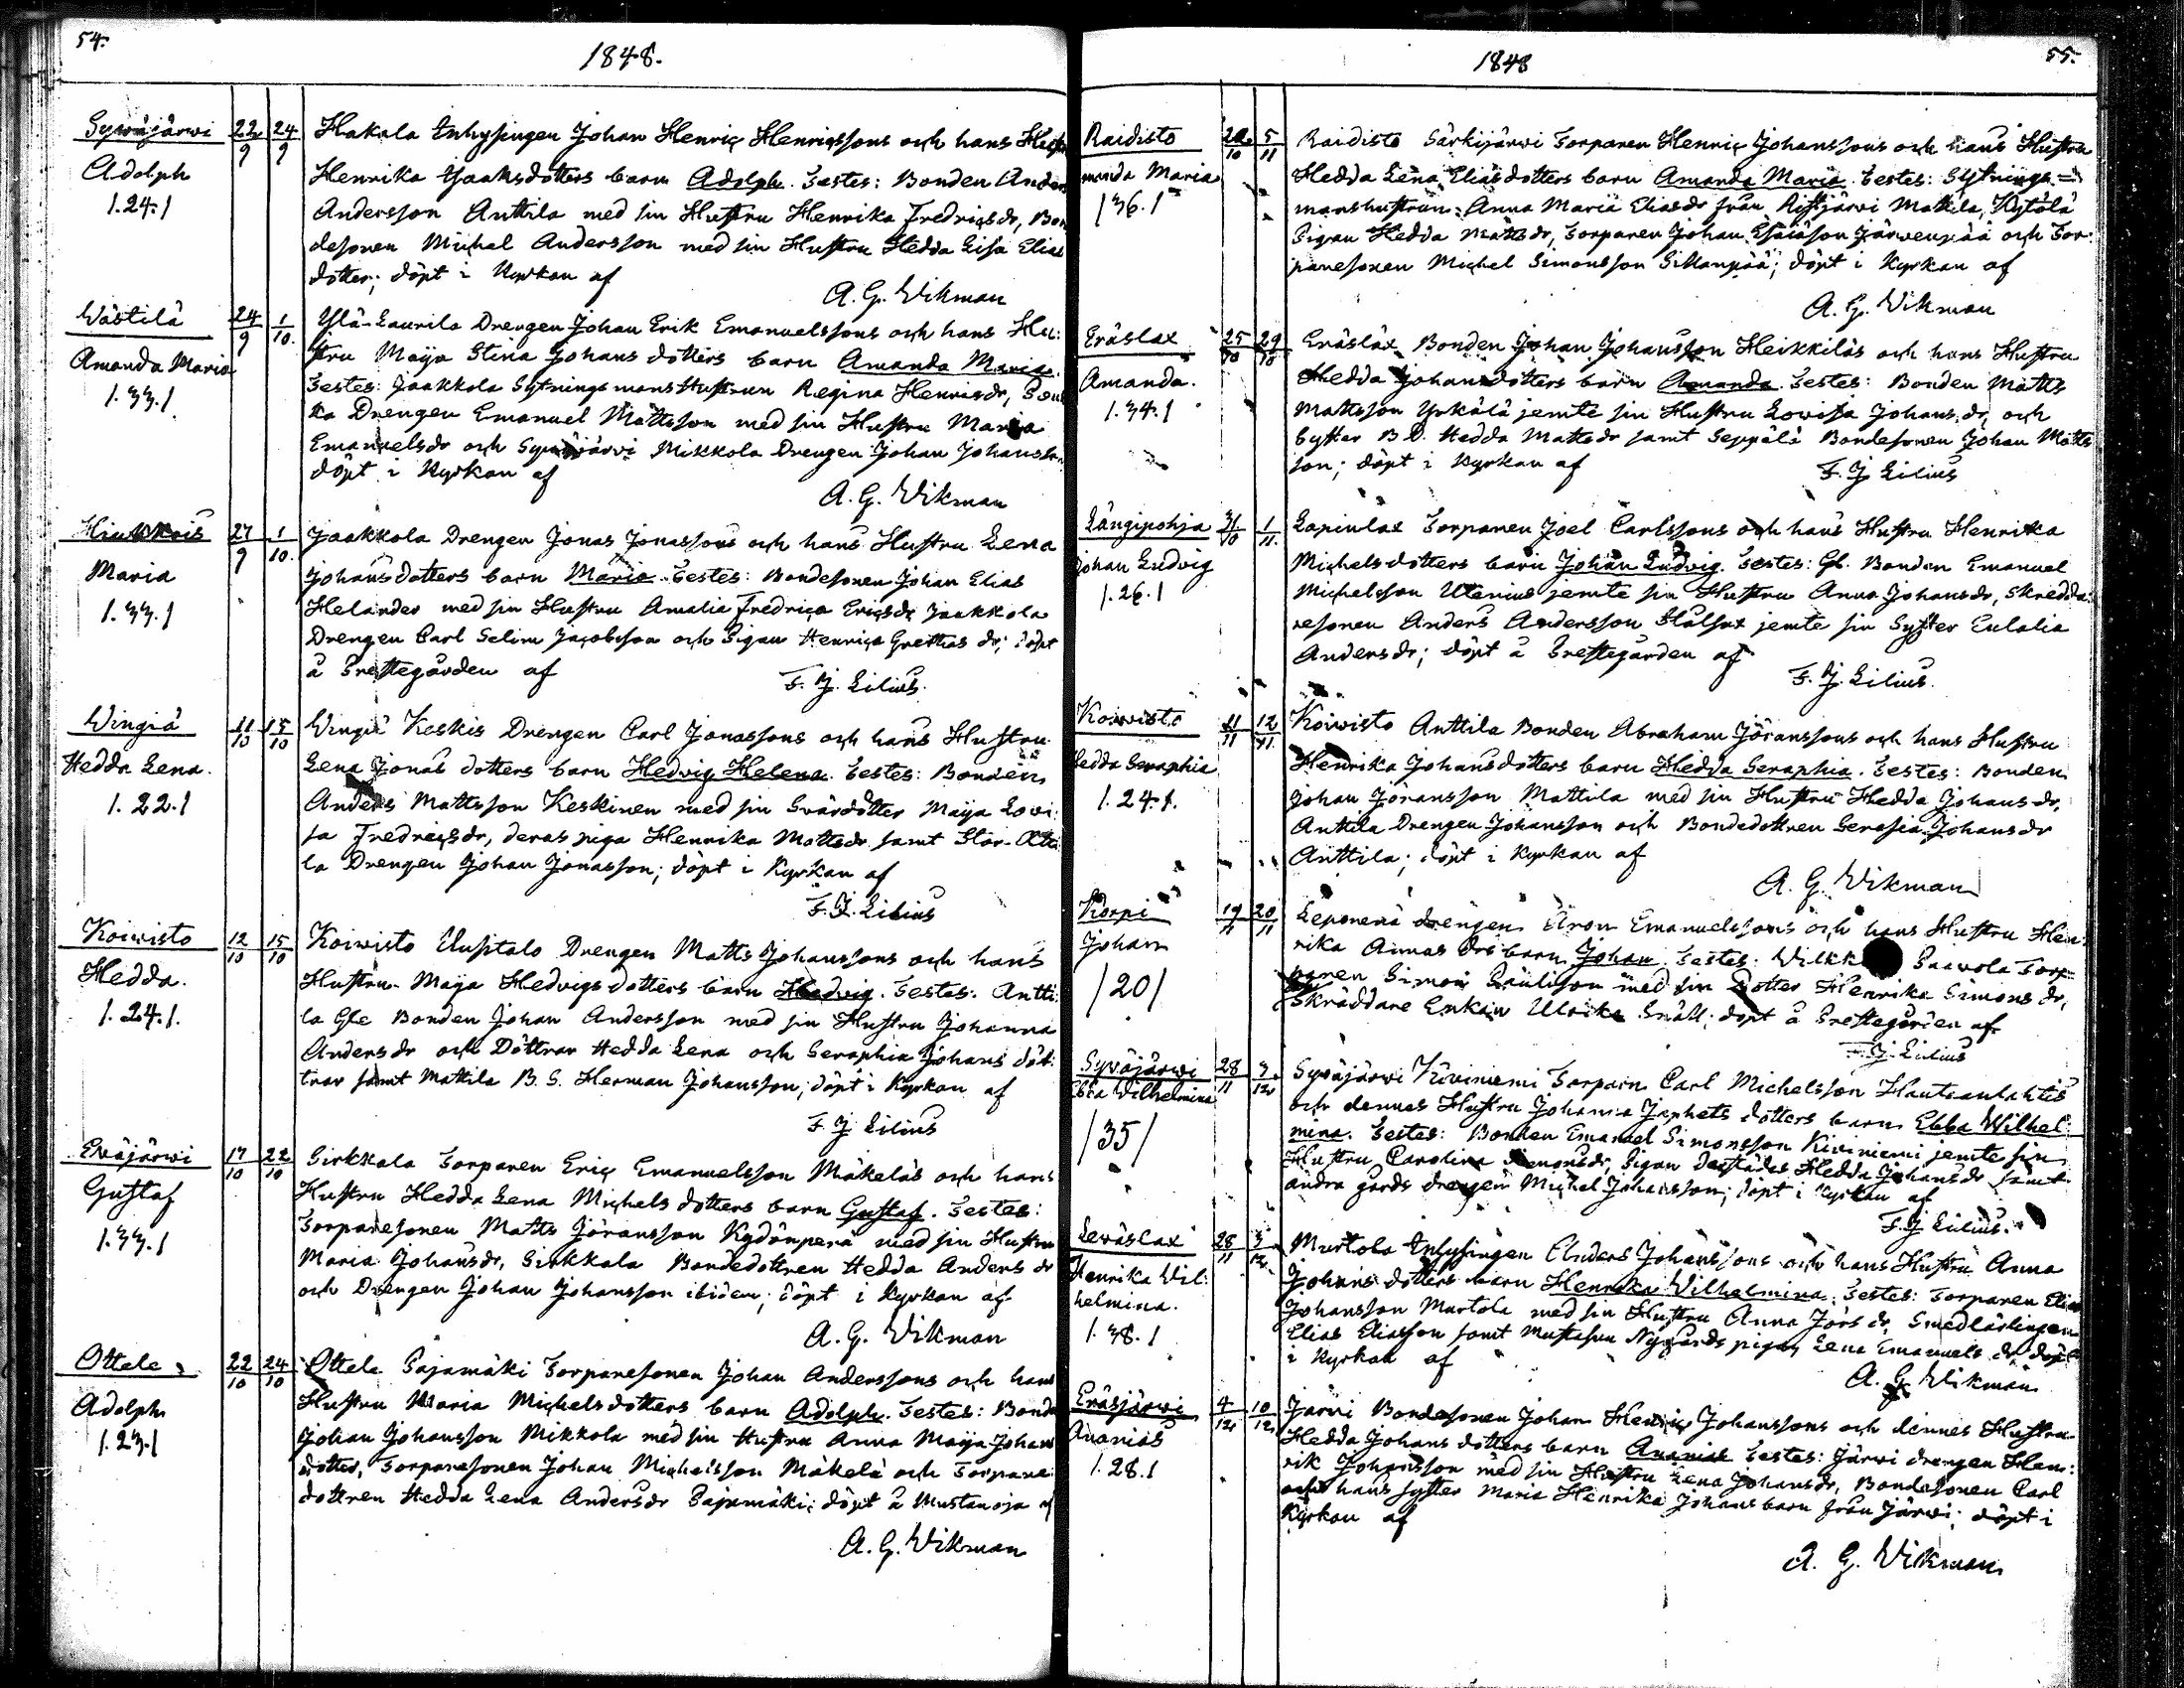 54.
1848.
Sywäjärwi 22/9 24/9 Hakala Inhysingen Johan Henric Henricssons och hans Hustru
Adolph Henrika Jaaksdotters barn Adolph. Testes: Bonden Anders
1.24.1 Andersson Anttila med sin Hustru Henrika Fredricsdr, Bon
desonen Michel Andersson med sin Hustru Hedda Lisa Elias
dotter; döpt i Kyrkan af
A. G. Wikman
Wästilä 24/9 1/10. Ylä-Laurila Drengen Johan Erik Emanuelssons och hans Hu:
Amanda Maria stru Maja Stina Johans dotters barn Amanda Maria.
1.33.1 Testes: Jaakkola Sytningsmans Hustrun Regina Henricsdr,
ka Drengen Emanuel Mattsson med sin Hustru Maria
Emanuelsdr och Sywäjärvi Mikkola Drengen Johan Johansson
döpt i Kyrkan af
A. G. Wikman
27/9 1/10. Jaakkola Drengen Jonas Jonassons och hans Hustru Lena
Maria Johansdotters barn Maria. Testes: Bondesonen Johan Elias
1.33.1 Helander med sin Hustru Amalia Fredrica Ericsdr Jaakkola
Drengen Carl Selim Jacobsson och Pigan Henrica Grethas dr; döpt
å Prestegården af
F. J. Lilius.
Wingiä 11/10 15/10 Wingiä Keskis Drengen Carl Jonassons och hans Hustru
Hedda Lena. Lena Jonas dotters barn Hedvig Helena. Testes: Bonden
1.22.1 Anders Mattsson Keskinen med sin Svärdotter Maja Lovi:
sa Fredricsdr, deras piga Henrika Mattsdr samt Stor-Atti
la Drengen Johan Jonasson; döpt i Kyrkan af
F. J. Lilius
Koiwisto 12/10 15/10 Koiwisto Uusitalo Drengen Matts Johanssons och hans
Hedda. Hustru Maja Hedvigs dotters barn Hedvig. Testes: Antti:
1.24.1. la Gle Bonden Johan Andersson med sin Hustru Johanna
Anders dr och Döttrar Hedda Lena och Seraphia Johans döt:
trar samt Mattila B. S. Herman Johansson; döpt i Kyrkan af
F. J. Lilius
Eväjärwi 17/10 22/10 Sirkkala Torparen Eric Emanuelsson Mäkeläs och hans
Gustaf Hustru Hedda Lena Michels dotters barn Gustaf. Testes:
1.33.1 Torparesonen Matts Jöransson Kydönperä med sin Hustru
Maria Johansdr, Sirkkala Bondedottren Hedda Anders dr
och Drengen Johan Johansson ibidem; döpt i Kyrkan af
A. G. Wikman
Ottele 22/10 24/10 Ottele Pajamäki Torparesonen Johan Anderssons och hans
Adolph Hustru Maria Michelsdotters barn Adolph. Testes: Bonden
1.23.1 Johan Johansson Mikkola med sin Hustru Anna Maja Johans
dotter, Torparesonen Johan Michelsson Mäkelä och Torpare
dottren Hedda Lena Andersdr Pajamäki; döpt å Mustanoja af
A. G. Wikman
1848
55.
Raidisto 5/11 Raidisto Särkijärwi Torparen Henric Johanssons och hans Hustru
manda Maria Hedda Lena Eliasdotters barn Amanda Maria. Testes: Sytnings=
136.1 manshustrun Anna Maria Eliasdr från Mattila, Kytölä
Pigan Hedda Matts dr, Torparen Johan Esaiasson Järwenpää och Tor:
paresonen Michel Simonsson Sillanpää; döpt i Kyrkan af
A. G. Wikman
Eräslax 25/10 29/10 Eräslax Bonden Johan Johansson Heikkiläs och hans Hustru
Amanda. Hedda Johansdotters barn Amanda. Testes: Bonden Matts
1.34.1 Mattsson Yrkälä jemte sin Hustru Lowisa Johans dr, och
Sytter B. D. Hedda Mattsdr samt Seppälä Bondesonen Johan Matts
son; döpt i Kyrkan af
F. J. Lilius
Längipohja 31/10 1/11. Lapinlax Torparen Joel Carlssons och hans Hustru Henrika
Johan Ludvig Michelsdotters barn Johan Ludvig. Testes: Gl. Bonden Emanuel
1.26.1 Michelsson Utenius jemte sin Hustru Anna Johansdr, Skredda:
resonen Anders Andersson jemte sin Syster Eulalia
Andersdr; döpt å Prestegården af
F. J. Lilius.
Koiwisto 11/11 12/11. Koiwisto Anttila Bonden Abraham Jöranssons och hans Hustru
Hedda Seraphia Henrika Johansdotters barn Hedda Seraphia. Testes: Bonden
1.24.1. Johan Jöransson Mattila med sin Hustru Hedda Johans dr,
Anttila Drengen Johansson och Bondedottren Serafia Johansdr
Anttila; döpt i Kyrkan af
A. G. Wikman
Korpi 19/11 20/11 Leponens drengen Aron Emanuelssons och hans Hustru Hen:
Johan rika Annas drs barn Johan. Testes: Wilkk Paavola Torp=
1201 paren Simon Paulsson med sin Dotter Henrika Simons dr,
Skräddare Enkan Ulrika Snäll; döpt å Prestegården af
F. J. Lilius
Syväjärwi 28/11 3/12 Syväjärwi Kiviniemi Torparn Carl Michelsson Hautaalahtis
Ebba Wilhelmina och dennes Hustru Johanna Japhets dotters barn Ebba Wilhel:
1351 mina. Testes: Bonden Emanuel Simonsson Kiviniemi jemte sin
Hustru Carolina Simonsdr, Pigan derstädes Hedda Johansdr samt
andra gårds drengen Michel Johansson; döpt i Kyrkan af
F. J. Lilius.
Leväslax 28/11 3/12 Murtola Inhysingen Anders Johanssons och hans Hustru Anna
Henrika Wil: Johans dotters barn Henrika Wilhelmina. Testes: Torparen Elias
helmina. Johansson Murtola med sin Hustru Anna Jörs dr, Smedlärlingen
1.38.1 Elias Eliasson samt Mustasuu Nygårds pigan Lena Emanuels dr döpt
i Kyrkan af
A. G. Wikman
Eräsjärwi 4/12 10/12 Järvi Bondesonen Johan Henric Johanssons och dennes Hustru
Ananias Hedda Johans dotters barn Ananias Testes: Järwi drengen Hen:
1.28.1 rik Johansson med sin Hustru Lena Johansdr, Bondesonen Carl
och hans syster Maria Henrika Johans barn från Järwi; döpt i
Kyrkan af
A. G. Wikman